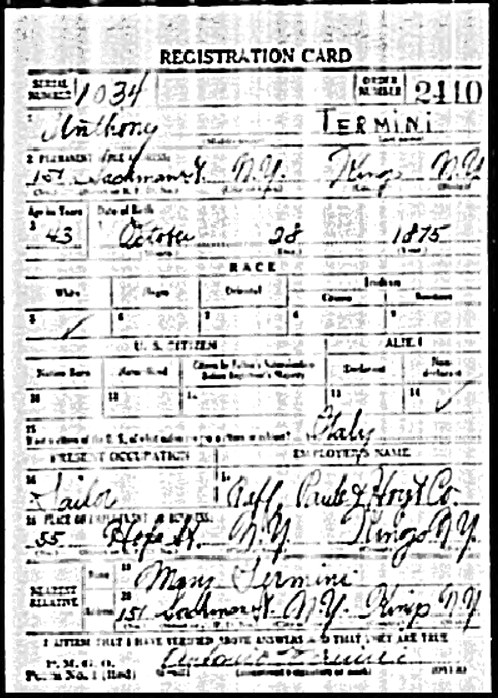 REGISTRATION CARD
SERIAL NUMBER 1034 ORDER NUMBER 2440
1 Anthony TERMINI
2 PERMANENT HOME ADDRESS:
151 N.Y. Kings N.Y.
Age in Years Date of Birth
3 43 4 October 28 1875
RACE
White Negro Oriental Indian
Citizen Noncitizen
5 ✓ 6 7 8 9
U. S. CITIZEN ALIEN
Native Born Naturalized Citizen by Father's Naturalization Before Registrant's Majority Declarant Non-declarant
10 11 12 13 14 ✓
15
Italy
PRESENT OCCUPATION EMPLOYER'S NAME
16 17
Tailor Hoyt Co.
18 PLACE OF EMPLOYMENT OR BUSINESS:
55 Hope St. N.Y. Kings N.Y.
NEAREST RELATIVE Name 19 Mary Termini
Address 20 151 N.Y. Kings N.Y.
I AFFIRM THAT I HAVE VERIFIED ABOVE ANSWERS AND THAT THEY ARE TRUE
P. M. G. O.
Form No. 1 (Red) Antonio Termini